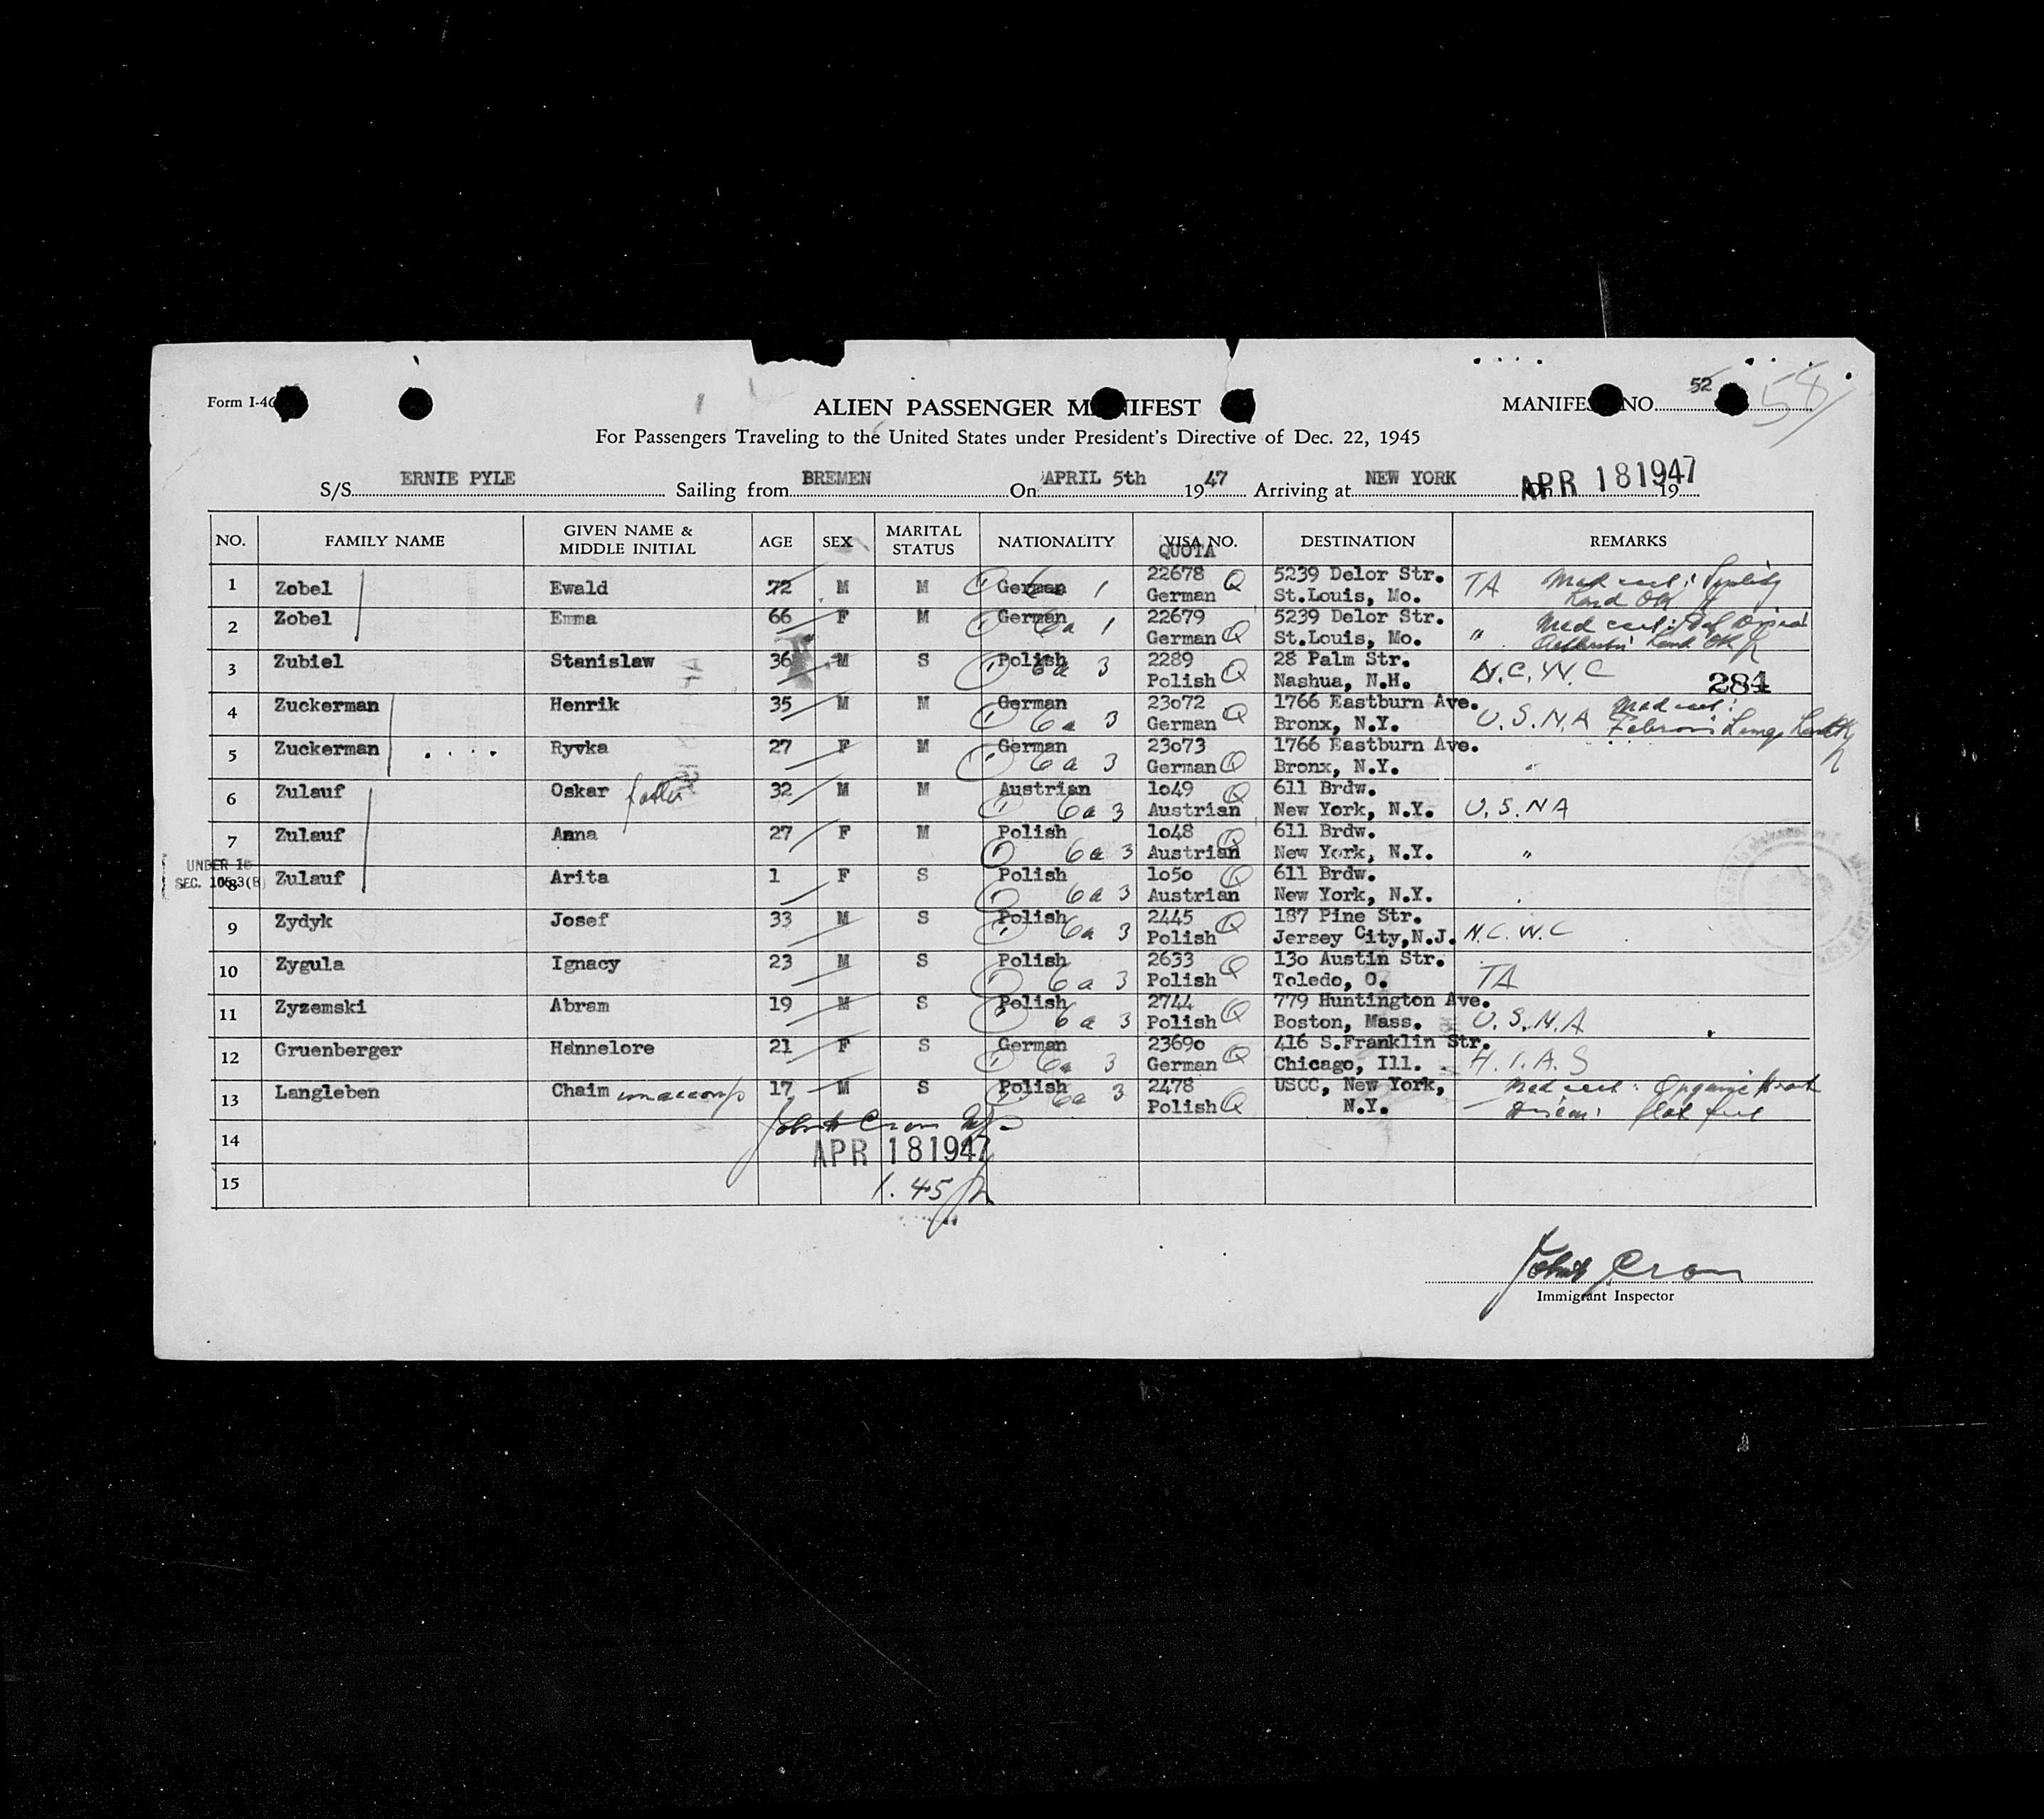 Form I-46
ALIEN PASSENGER MANIFEST
MANIFEST NO. 52 58
For Passengers Traveling to the United States under President's Directive of Dec. 22, 1945
S/S ERNIE PYLE Sailing from BREMEN On APRIL 5th 1947 Arriving at NEW YORK On 19 APR 18 1947
NO. FAMILY NAME GIVEN NAME & MIDDLE INITIAL AGE SEX MARITAL STATUS NATIONALITY VISA NO. QUOTA DESTINATION REMARKS
1 Zobel Ewald 72 M M German 1 22678 Q 5239 Delor Str. TA Med cert:
German St.Louis, Mo.
2 Zobel Emma 66 F M German 6a 1 22679 5239 Delor Str. " Med cert:
German Q St.Louis, Mo.
3 Zubiel Stanislaw 36 M S Polish 6a 3 2289 28 Palm Str. N.C.W.C
Polish Q Nashua, N.H. 284
4 Zuckerman Henrik 35 M M German 6a 3 23o72 1766 Eastburn Ave. U.S.N.A Med cert:
German Q Bronx, N.Y.
5 Zuckerman Ryvka 27 F M German 6a 3 23o73 1766 Eastburn Ave. "
German Q Bronx, N.Y.
6 Zulauf Oskar father 32 M M Austrian 6a 3 1o49 Q 611 Brdw. U.S.NA
Austrian New York, N.Y.
7 Zulauf Anna 27 F M Polish 6a 3 1o48 Q 611 Brdw. "
Austrian New York, N.Y.
UNDER 16
SEC. 105.3(B)
8 Zulauf Arita 1 F S Polish 6a 3 1o50 Q 611 Brdw.
Austrian New York, N.Y.
9 Zydyk Josef 33 M S Polish 6a 3 2445 Q 187 Pine Str. N.C.W.C
Polish Jersey City,N.J.
10 Zygula Ignacy 23 M S Polish 6a 3 2633 Q 13o Austin Str. TA
Polish Toledo, O.
11 Zyzemski Abram 19 M S Polish 6a 3 2744 Q 779 Huntington Ave. U.S.N.A
Polish Boston, Mass.
12 Gruenberger Hannelore 21 F S German 6a 3 2369o Q 416 S.Franklin Str. H.I.A.S
German Chicago, Ill.
13 Langleben Chaim unaccomp 17 M S Polish 6a 3 2478 USCC, New York, Med cert: Organic Heart
Polish Q N.Y. flat feet
14 John Cron
APR 18 1947
15 1.45
John Cron
Immigrant Inspector